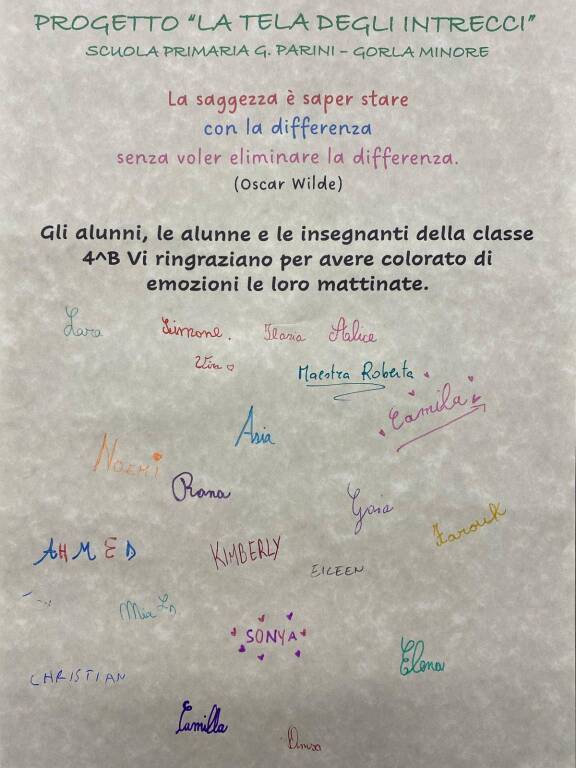 PROGETTO “LA TELA DEGLI INTRECCI”
SCUOLA PRIMARIA G. PARINI – GORLA MINORE
La saggezza è saper stare
con la differenza
senza voler eliminare la differenza.
(Oscar Wilde)
Gli alunni, le alunne e le insegnanti della classe
4^B Vi ringraziano per avere colorato di
emozioni le loro mattinate.
Lara Simone. Ilaria Alice
Maestra Roberta
Camila
Asia
NOEMI
Rana
Gaia
Farouk
AHMED KIMBERLY
EILEEN
Mia
SONYA
Elena
CHRISTIAN
Camilla